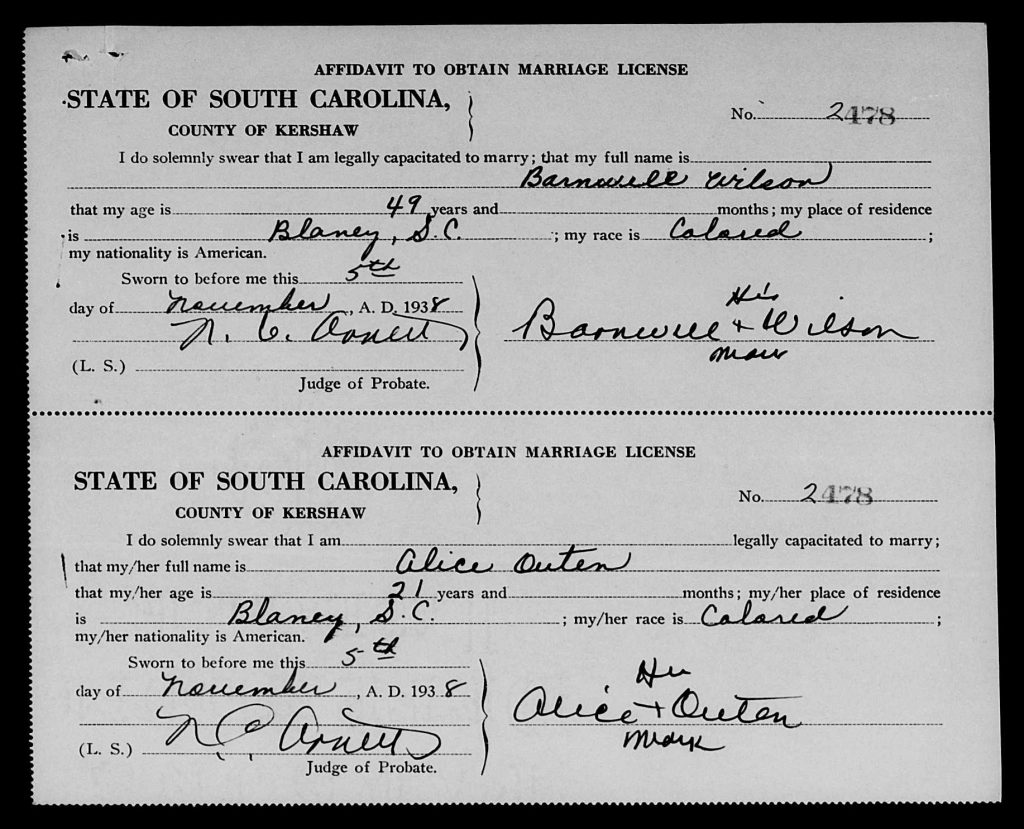 AFFIDAVIT TO OBTAIN MARRIAGE LICENSE
STATE OF SOUTH CAROLINA,
No. 2478
COUNTY OF KERSHAW
I do solemnly swear that I am legally capacitated to marry; that my full name is
Barnwell Wilson
that my age is 49 years and months; my place of residence
is Blaney, S.C. ; my race is Colored ;
my nationality is American.
Sworn to before me this 5th
day of November, A. D. 1938
His
N. C. Arnett
Barnwell + Wilson
Mark
(L. S.)
Judge of Probate.
AFFIDAVIT TO OBTAIN MARRIAGE LICENSE
STATE OF SOUTH CAROLINA,
No. 2478
COUNTY OF KERSHAW
I do solemnly swear that I am legally capacitated to marry;
that my/her full name is Alice Outen
that my/her age is 21 years and months; my/her place of residence
is Blaney, S.C. ; my/her race is Colored ;
my/her nationality is American.
Sworn to before me this 5th
day of November, A. D. 1938
Her
Alice + Outen
Mark
N. C. Arnett
(L. S.)
Judge of Probate.